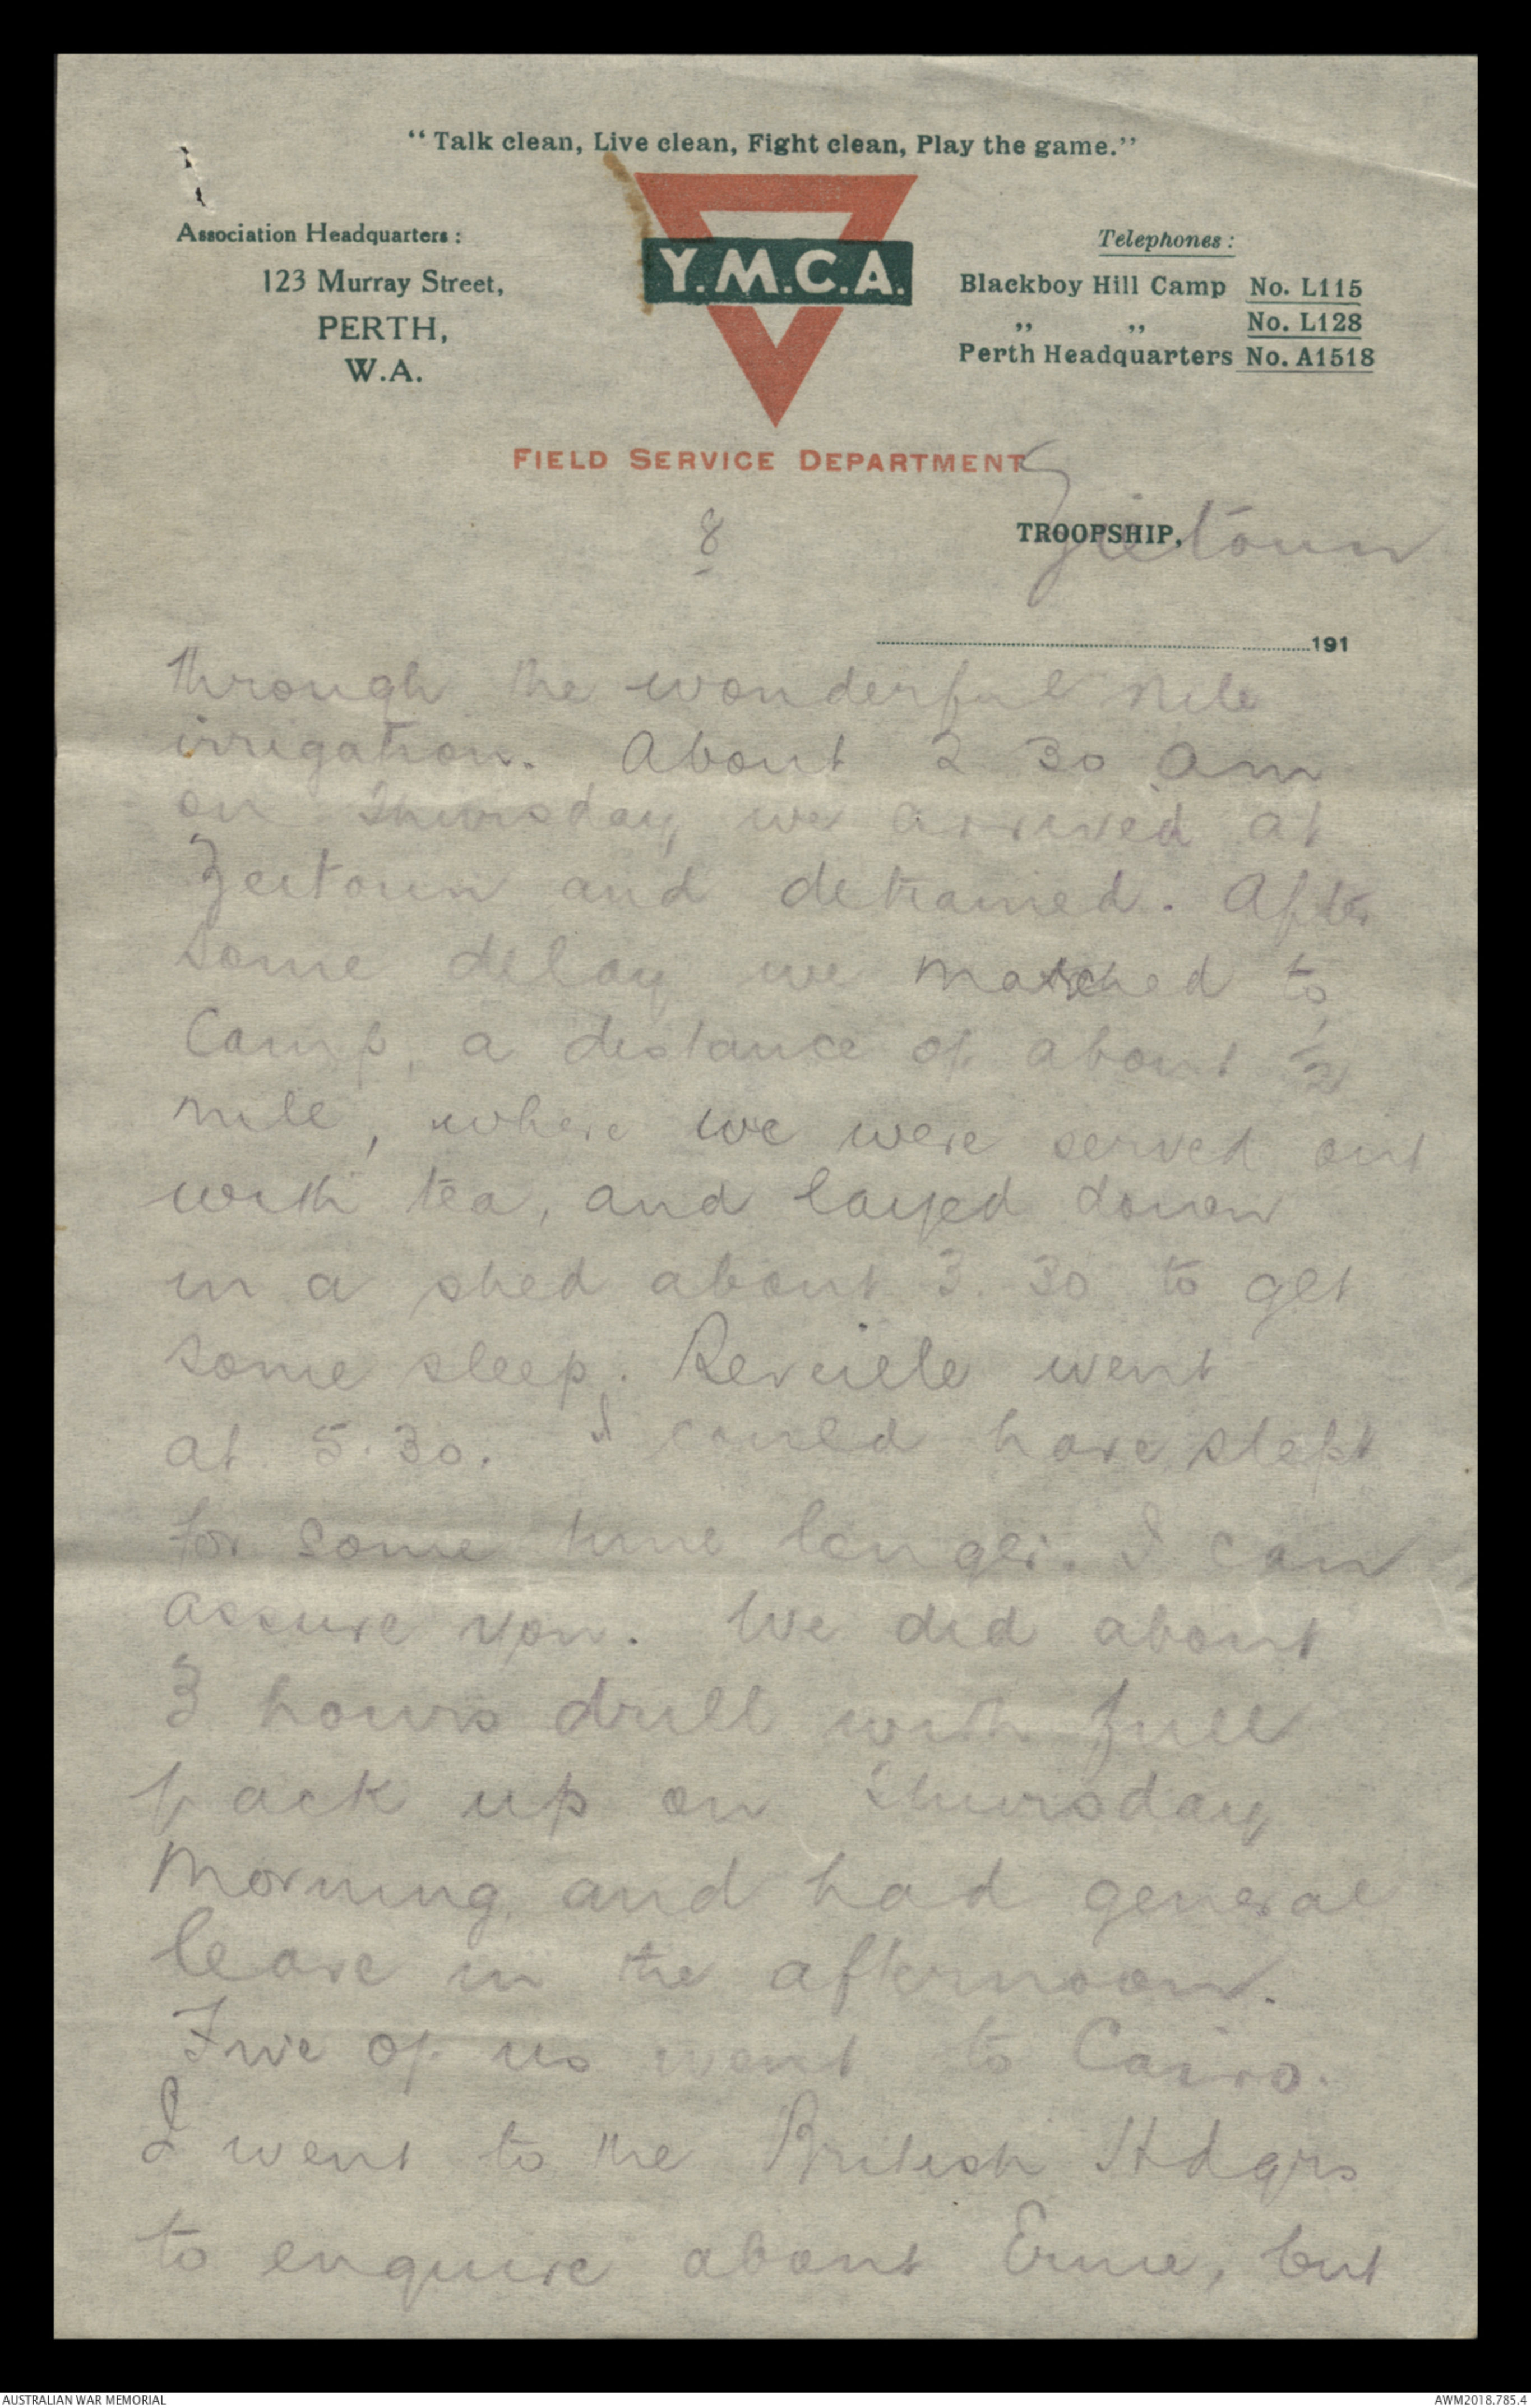 “Talk clean, Live clean, Fight clean, Play the game.”
Association Headquarters:
123 Murray Street,
PERTH,
W.A.
Y.M.C.A.
Telephones:
Blackboy Hill Camp No. L115
„ „ No. L128
Perth Headquarters No. A1518
FIELD SERVICE DEPARTMENT
8
TROOPSHIP, Zietoun
191
through the wonderful Nile
irrigation. About 2 30 am
on Thursday we arrived at
Zeitoun and detrained. After
some delay we marched to
Camp, a distance of about 1/2
mile, where we were served out
with tea, and layed down
in a shed about 3.30 to get
some sleep. Reveille went
at 5.30. I could have slept
for some time longer. I can
assure you. We did about
3 hours drill with full
pack up on Thursday
Morning, and had general
leave in the afternoon.
Five of us went to Cairo.
I went to the British Hdqrs
to enquire about Ernie, but
AUSTRALIAN WAR MEMORIAL
AWM2018.785.4